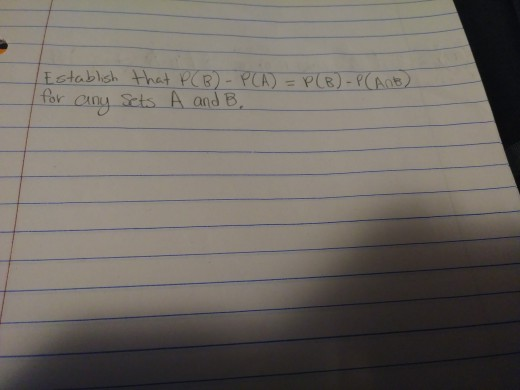 Establish that P(B) - P(A) = P(B) - P(A∩B)
for any Sets A and B.